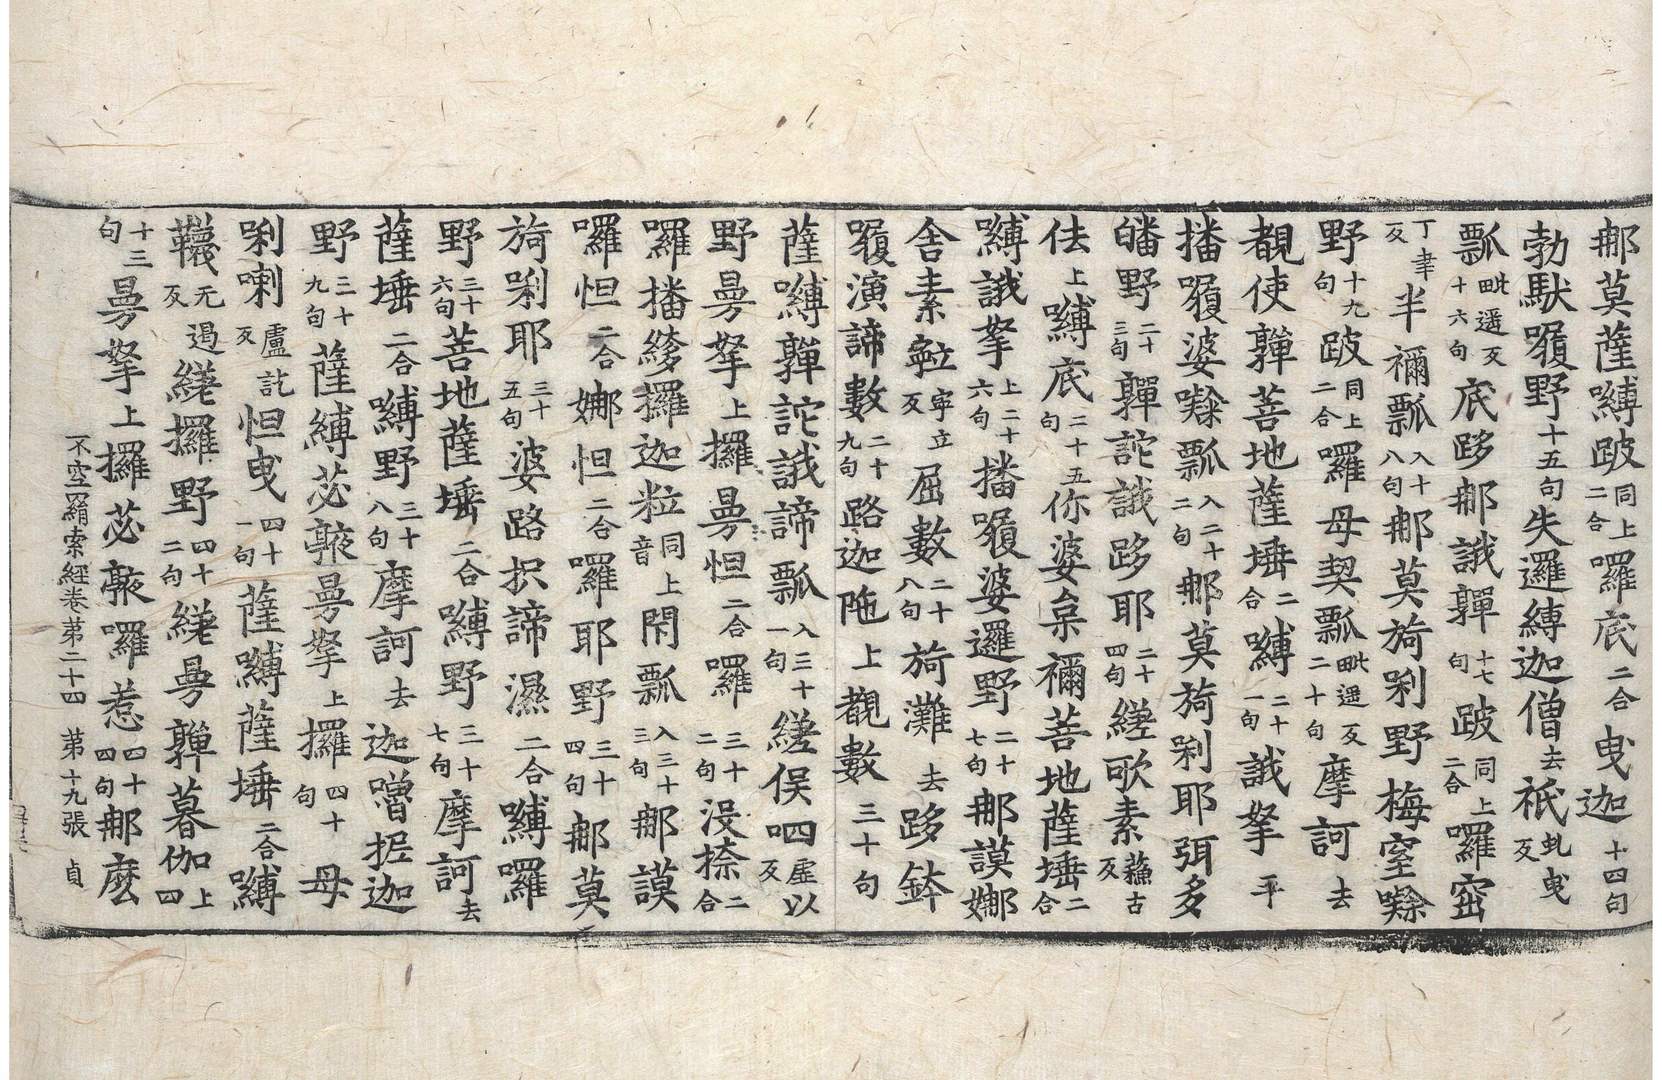 那莫薩嚩跛同上二合囉底二合曳迦十四句
勃馱㗚野十五句失邏縛迦僧去祇虬曳反
瓢毗遥反十六句底跢那誐嚲十七句跛同上二合囉窋
丁聿反半禰瓢入十八句那莫旖唎野梅窒㘑
野十九句跛同上二合囉母契瓢毗遥反二十句摩訶去
覩使嚲菩地薩埵二合嚩二十一句誐拏平
播㗚婆㘑瓢入二十二句那莫旖唎耶弭多
皤野二十三句嚲詑誐跢耶二十四句縒歌素蘓古反
佉上嚩底二十五句你婆枲禰菩地薩埵二合
嚩誐拏上二十六句播㗚婆邏野二十七句那謨娜
舍素㝕寧立反屈數二十八句旖灘去跢鉢
㗚演諦數二十九句路迦陁上覩數三十句
薩嚩嚲詑誐諦瓢入三十一句縒俁呬虛以反
野曼拏上攞曼怛二合囉三十二句沒捺二合
囉播縿攞迦粒同上音閇瓢入三十三句那謨
囉怛二合娜怛二合囉耶野三十四句那莫
旖唎耶三十五句婆路枳諦濕二合嚩囉
野三十六句菩地薩埵二合嚩野三十七句摩訶去
薩埵二合嚩野三十八句摩訶去迦嚕抳迦
野三十九句薩嚩苾𩕳曼拏上攞四十句母
唎喇盧訖反怛曳四十一句薩嚩薩埵二合嚩
韈无遏反縒攞野四十二句縒曼嚲暮伽上四
十三句曼拏上攞苾𩕳囉惹四十四句那麽
不空羂索經卷第二十四　第十九張　貞